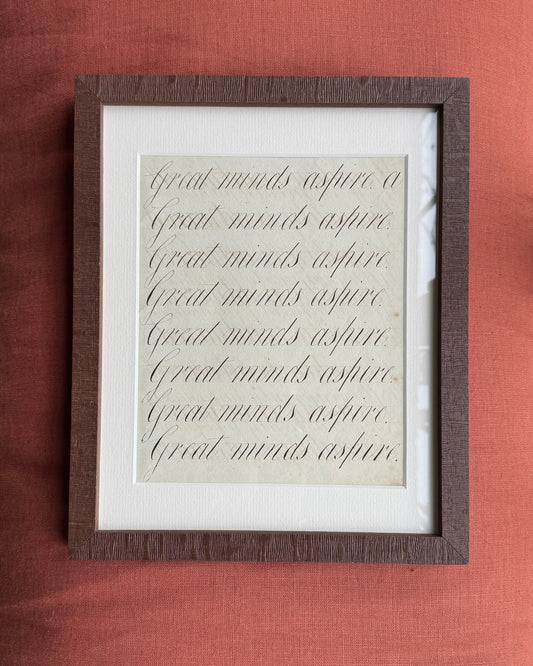 Great minds aspire. a
Great minds aspire.
Great minds aspire.
Great minds aspire.
Great minds aspire.
Great minds aspire.
Great minds aspire.
Great minds aspire.